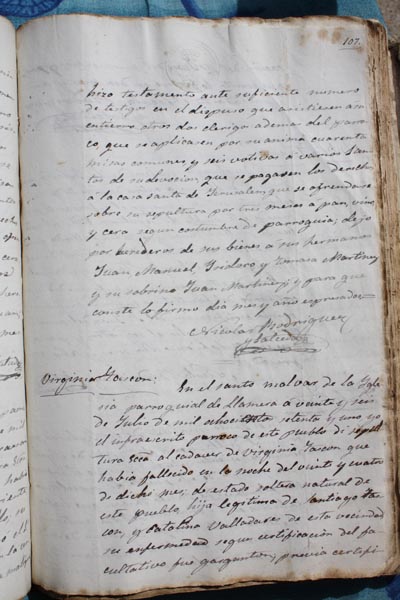 107.
hizo testamento ante suficiente numero
de testigos en el dispuso que asistiesen a su
entierro otros dos clerigos ademas del parro
co, que se aplicasen por su anima cuarenta
misas comunes y seis votivas a varios San
tos de su devocion, que se pagasen los derechos
à la casa santa de Jerusalem, que se ofrendase
sobre su sepultura por tres meses a pan, vino,
y cera segun costumbre de parroquia; dejo
por herederos de sus bienes a sus hermanos
Juan, Manuel, Ysidoro y Tomasa Martinez
y su sobrino Juan Martinez; y para que
conste lo firmo dia mes y año expresados
Nicolas Rodriguez
y Salcedo
Virginia Gascon:
En el santo malvar de la Ygle
sia parroquial de Llamera a veinte y seis
de Julio de mil ochocientos setenta y uno yo
el infraescrito parroco de este pueblo di sepul
tura ecca al cadaver de Virginia Gascon que
habia fallecido en la noche del veinte y cuatro
de dicho mes, de estado soltera natural de
este pueblo, hija legitima de Santiago Gas
con, y Catalina Valladares de esta vecindad
su enfermedad segun certificacion del fa
cultativo fue garganton; previa certifi